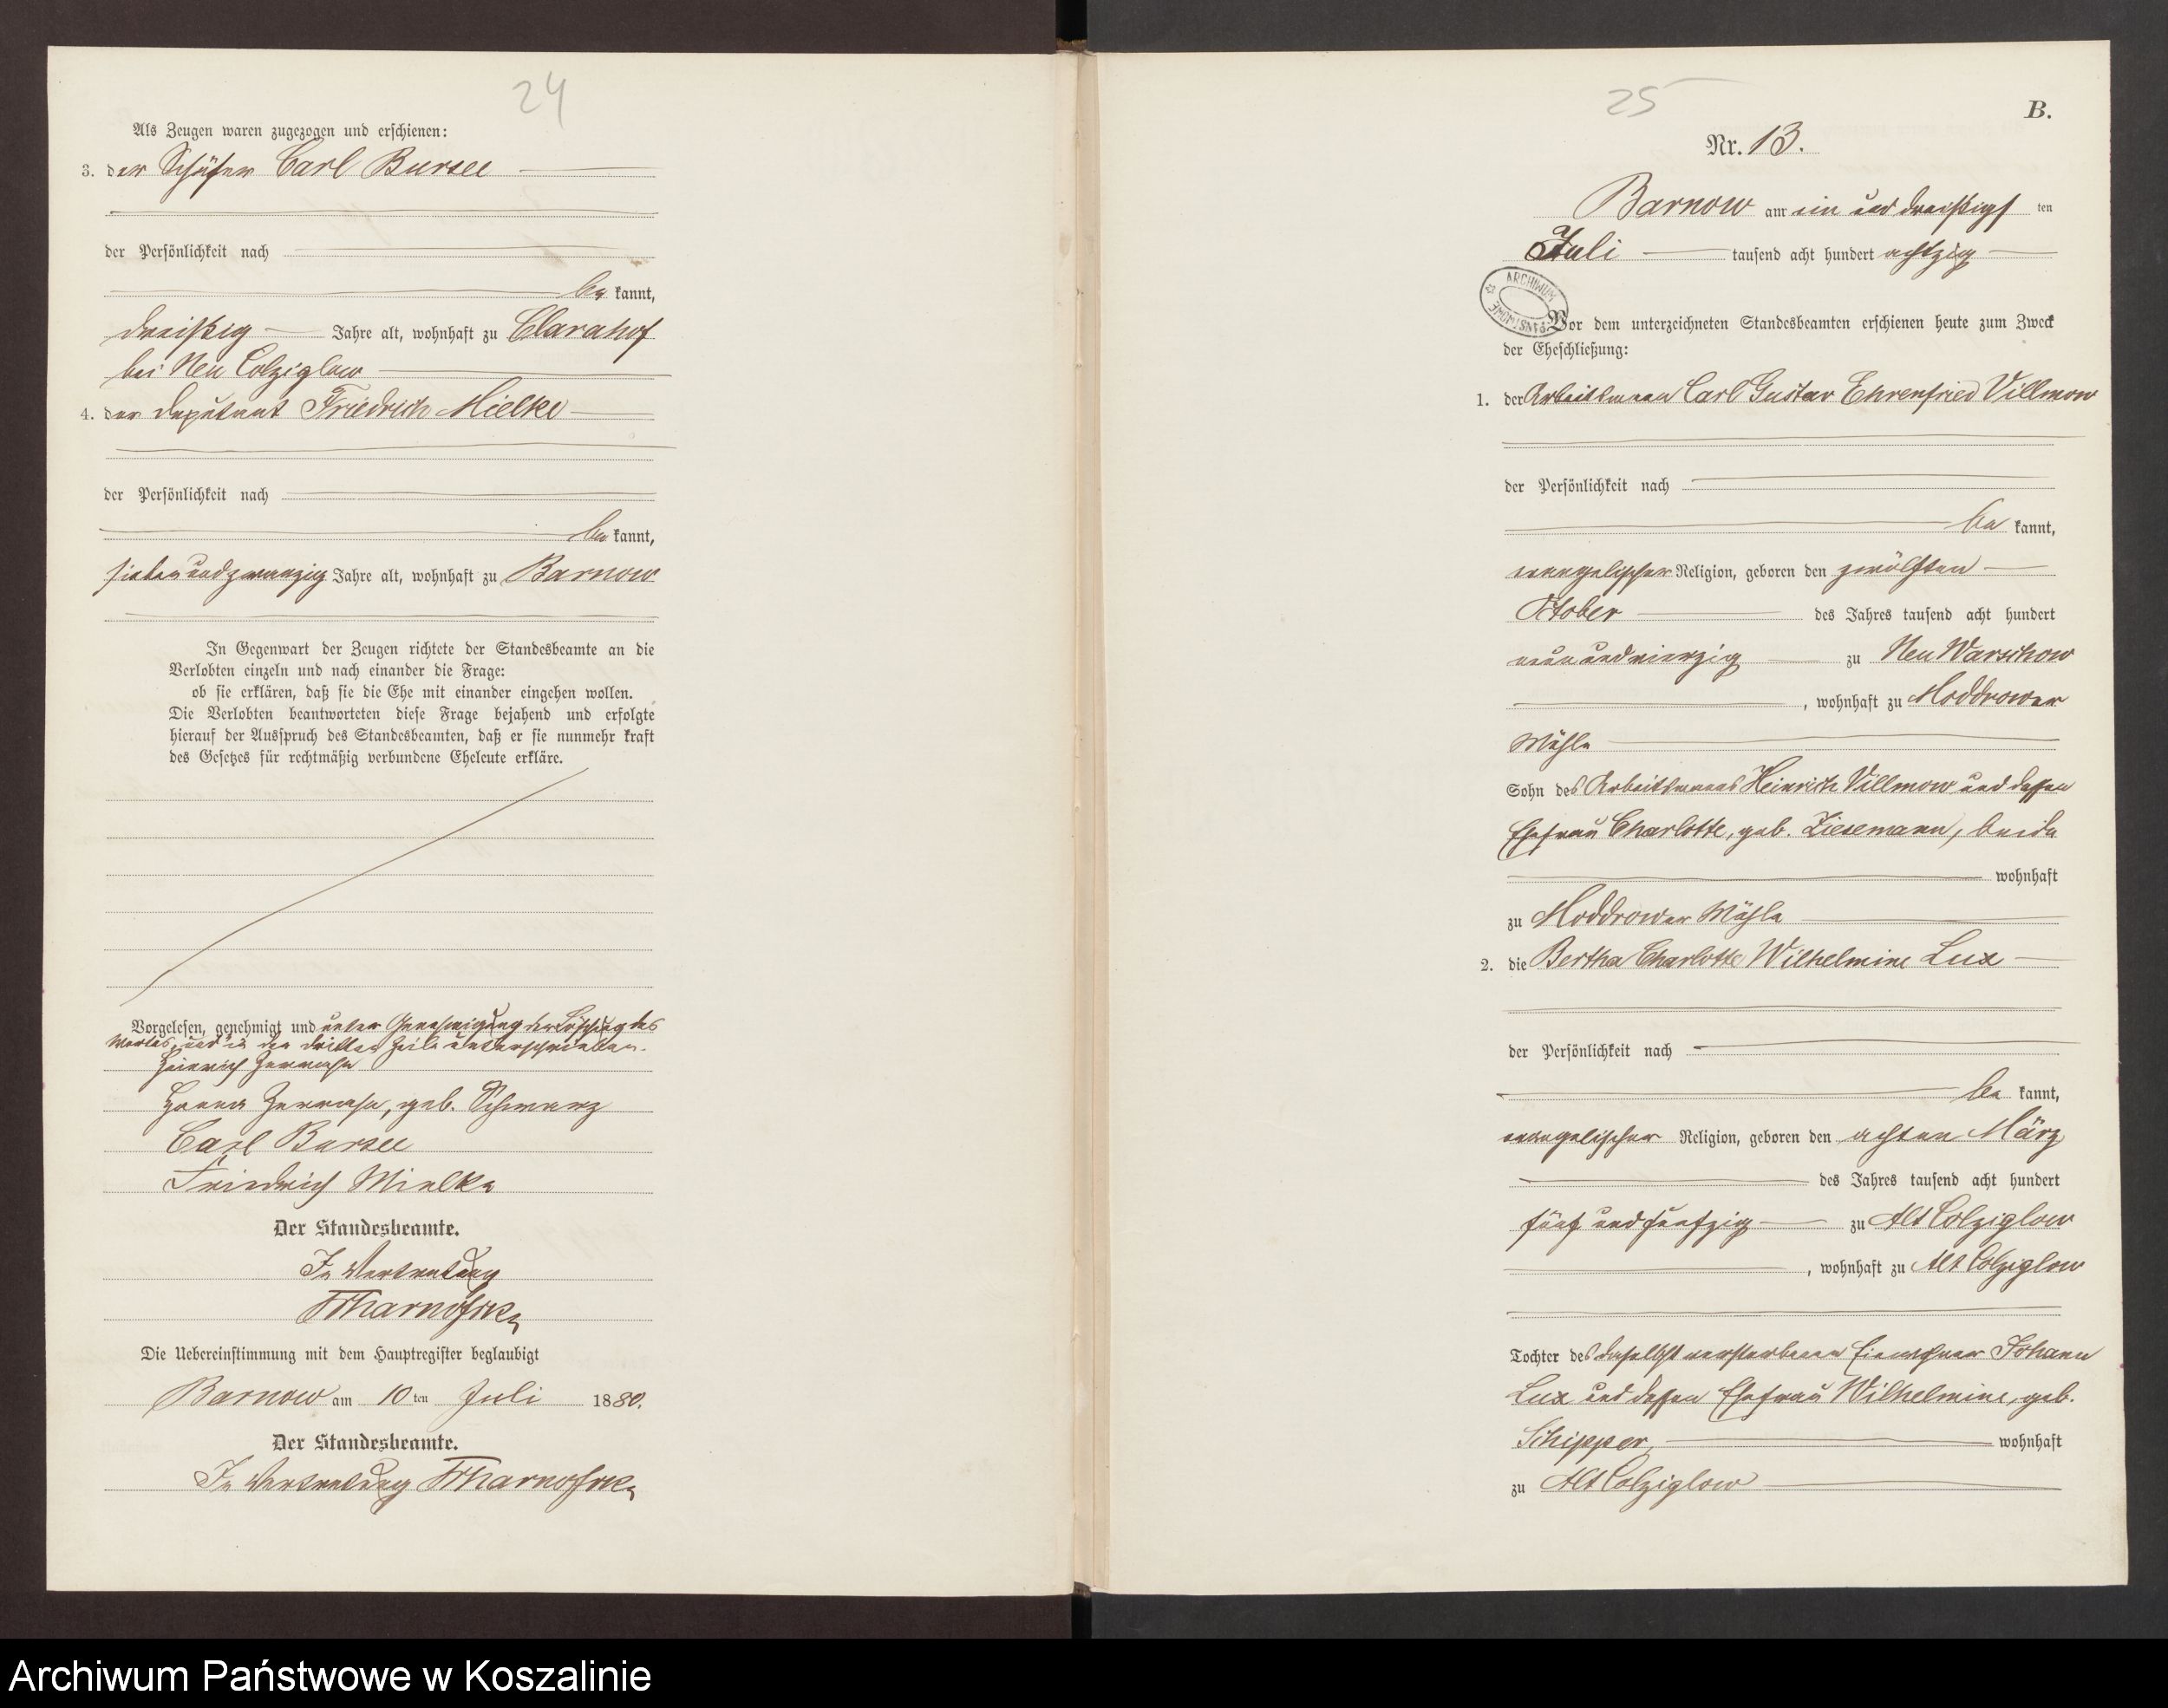 24
Als Zeugen waren zugezogen und erschienen:
3. der Schäfer Carl Bursee
der Persönlichkeit nach
be kannt,
dreißig Jahre alt, wohnhaft zu Clarahof
bei Neu Colziglow
4. der Deputant Friedrich Mielke
der Persönlichkeit nach
be kannt,
sieben und zwanzig Jahre alt, wohnhaft zu Barnow
In Gegenwart der Zeugen richtete der Standesbeamte an die
Verlobten einzeln und nach einander die Frage:
ob sie erklären, daß sie die Ehe mit einander eingehen wollen.
Die Verlobten beantworteten diese Frage bejahend und erfolgte
hierauf der Ausspruch des Standesbeamten, daß er sie nunmehr kraft
des Gesetzes für rechtmäßig verbundene Eheleute erkläre.
Vorgelesen, genehmigt und unter Genehmigung der Löschung des
Wortes „und" in der dritten Zeile unterschrieben.
Heinrich
geb. Schwarz
Carl Bursee
Friedrich Mielke
Der Standesbeamte.
In Vertretung
Die Uebereinstimmung mit dem Hauptregister beglaubigt
Barnow am 10 ten Juli 1880.
Der Standesbeamte.
In Vertretung
25
B.
Nr. 13.
Barnow am ein und dreißigs ten
Juli tausend acht hundert achtzig
ARCHIWUM PAŃSTWOWE
Vor dem unterzeichneten Standesbeamten erschienen heute zum Zweck
der Eheschließung:
1. der Arbeitsmann Carl Gustav Ehrenfried Villmow
der Persönlichkeit nach
be kannt,
evangelischer Religion, geboren den zwölften
Oktober des Jahres tausend acht hundert
neun und vierzig zu Neu Warschow
, wohnhaft zu Moddrower
Mühle
Sohn des Arbeitsmanns Heinrich Villmow und dessen
Ehefrau Charlotte, geb. Ziesemann, beide
wohnhaft
zu Moddrower Mühle
2. die Bertha Charlotte Wilhelmine Lux
der Persönlichkeit nach
be kannt,
evangelischer Religion, geboren den achten März
des Jahres tausend acht hundert
fünf und funfzig zu Alt Colziglow
, wohnhaft zu Alt Colziglow
Tochter des daselbst verstorbenen Einwohner Johann
Lux und dessen Ehefrau Wilhelmine, geb.
Schipper, wohnhaft
zu Alt Colziglow
Archiwum Państwowe w Koszalinie